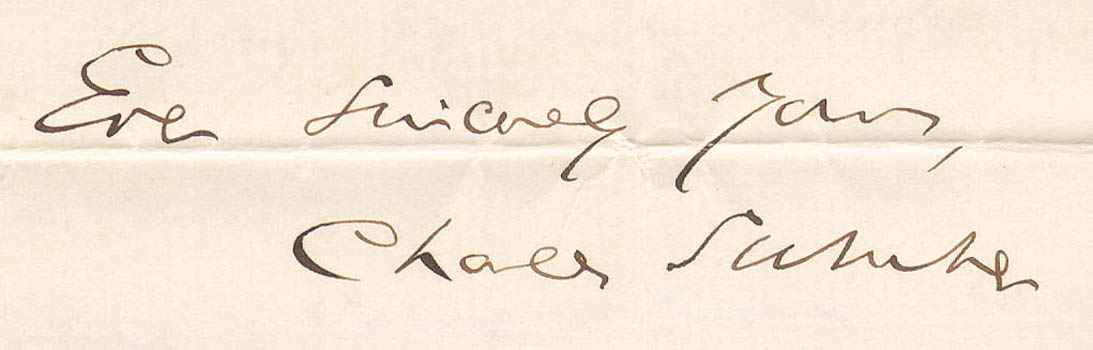 Ever Sincerely Yours,
Charles Sumner